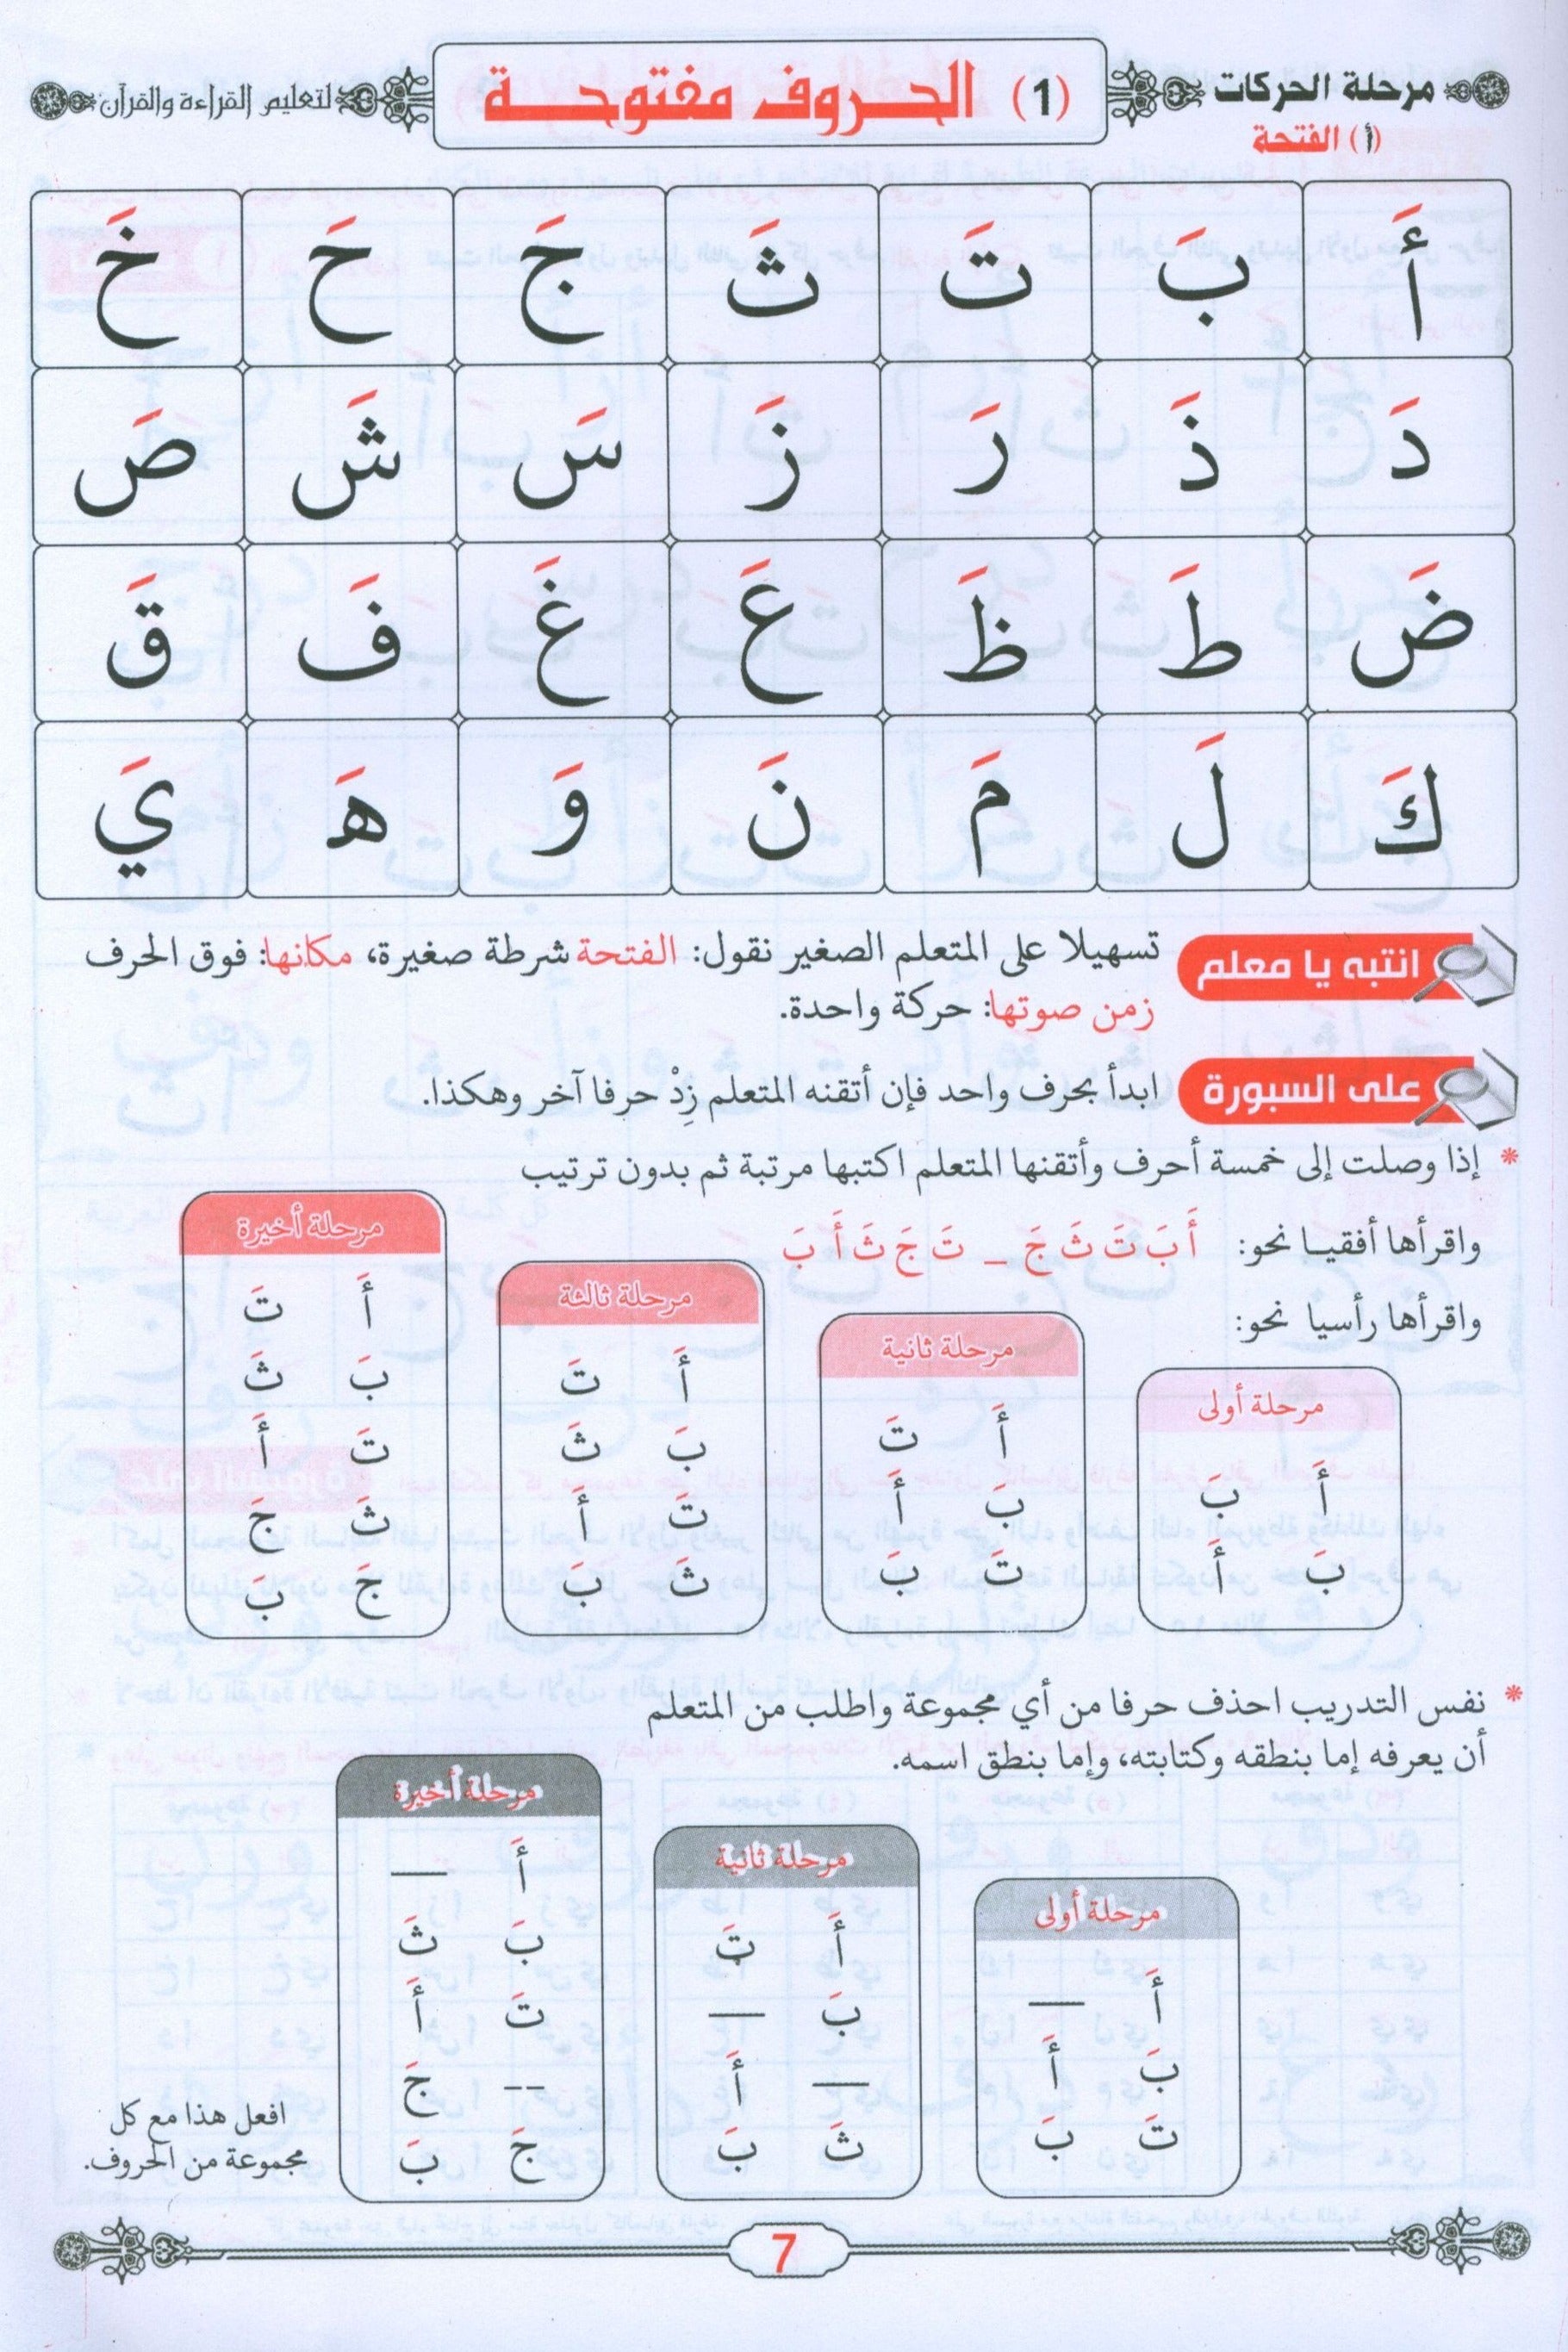 مرحلة الحركات
(أ) الفتحة
(1) الحروف مفتوحة
لتعليم القراءة والقرآن
أَ بَ تَ ثَ جَ حَ خَ
دَ ذَ رَ زَ سَ شَ صَ
ضَ طَ ظَ عَ غَ فَ قَ
كَ لَ مَ نَ وَ هَ يَ
انتبه يا معلم
تسهيلا على المتعلم الصغير نقول: الفتحة شرطة صغيرة، مكانها: فوق الحرف
زمن صوتها: حركة واحدة.
على السبورة
ابدأ بحرف واحد فإن أتقنه المتعلم زِدْ حرفا آخر وهكذا.
* إذا وصلت إلى خمسة أحرف وأتقنها المتعلم اكتبها مرتبة ثم بدون ترتيب
واقرأها أفقيا نحو: أَ بَ تَ ثَ جَ _ تَ جَ ثَ أَ بَ
واقرأها رأسيا نحو:
مرحلة أولى
أَ بَ
بَ أَ
مرحلة ثانية
أَ تَ
بَ أَ
تَ بَ
مرحلة ثالثة
أَ تَ
بَ ثَ
تَ أَ
ثَ بَ
مرحلة أخيرة
أَ تَ
بَ ثَ
تَ أَ
ثَ جَ
جَ بَ
* نفس التدريب احذف حرفا من أي مجموعة واطلب من المتعلم
أن يعرفه إما بنطقه وكتابته، وإما بنطق اسمه.
مرحلة أولى
أَ __
بَ أَ
تَ بَ
مرحلة ثانية
أَ تَ
بَ __
__ أَ
ثَ بَ
مرحلة أخيرة
أَ __
بَ ثَ
تَ أَ
-- جَ
جَ بَ
افعل هذا مع كل
مجموعة من الحروف.
7